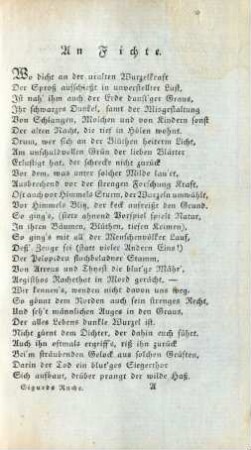 An Fichte.
Wo dicht an der uralten Wurzelkraft
Der Sproß aufschießt in unverstellter Lust,
Ist nah' ihm auch der Erde dunst'ger Graus,
Ihr schwarzes Dunkel, samt der Misgestaltung
Von Schlangen, Molchen und von Kindern sonst
Der alten Nacht, die tief in Hölen wohnt.
Drum, wer sich an der Blüthen heiterm Licht,
Am unschuldvollen Grün der lieben Blätter
Erlustigt hat, der schrecke nicht zurück
Vor dem, was unter solcher Milde lau'rt,
Ausbrechend vor der strengen Forschung Kraft,
Oft auch vor Himmels Sturm, der Wurzeln umwühlt,
Vor Himmels Blitz, der keck aufreißt den Grund.
So ging's, (stete ahnend Vorspiel spielt Natur,
In ihren Bäumen, Blüthen, tiefen Keimen),
So ging's mit all der Menschenvölker Lauf,
Deß' Zeuge sei (statt vieler Andren Eins!)
Der Pelopiden fluchbeladner Stamm,
Von Atreus und Thyest die blut'ge Mähr',
Aegisthos Rachethat in Mord gerächt. —
Wir kennen's, wenden nicht davon uns weg.
So gönnt dem Norden auch sein strenges Recht,
Und seh't mit männlichen Augen in den Graus,
Der alles Lebens dunkle Wurzel ist.
Nicht zürnt dem Dichter, der dahin euch führt.
Auch ihn oftmals ergriff's, riß ihn zurück
Bei'm sträubenden Gelock aus solchen Grüften,
Darin der Tod ein blut'ges Siegerthor
Sich aufbaut, drüber prangt der wilde Haß.
Sigurds Rache. A